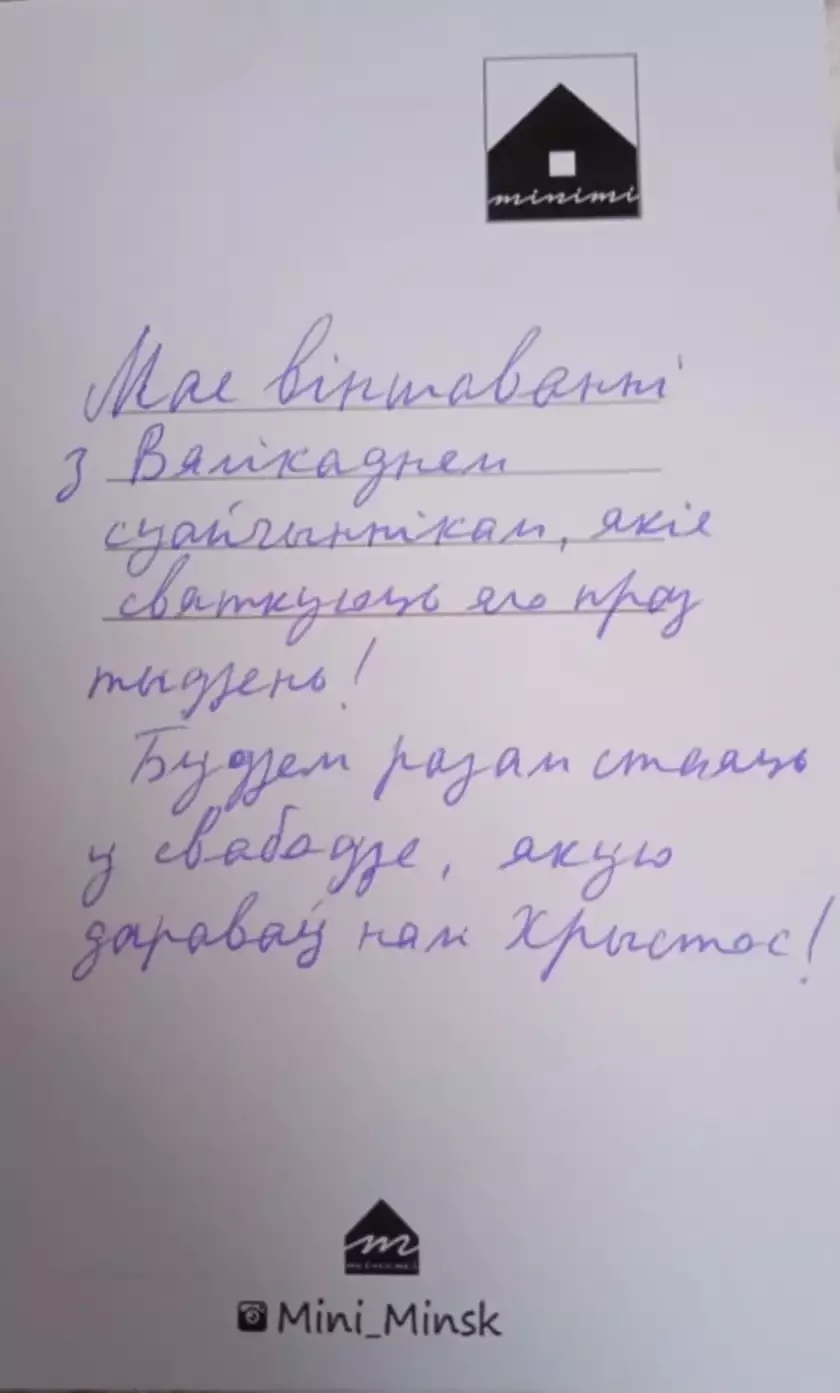 minimi
Мае віншаванні
з Вялікаднем
суайчыннікам, якія
святкуюць яго праз
тыдзень!
Будзем разам стаяць
у свабодзе, якую
дараваў нам Хрыстос!
m
Mini_Minsk